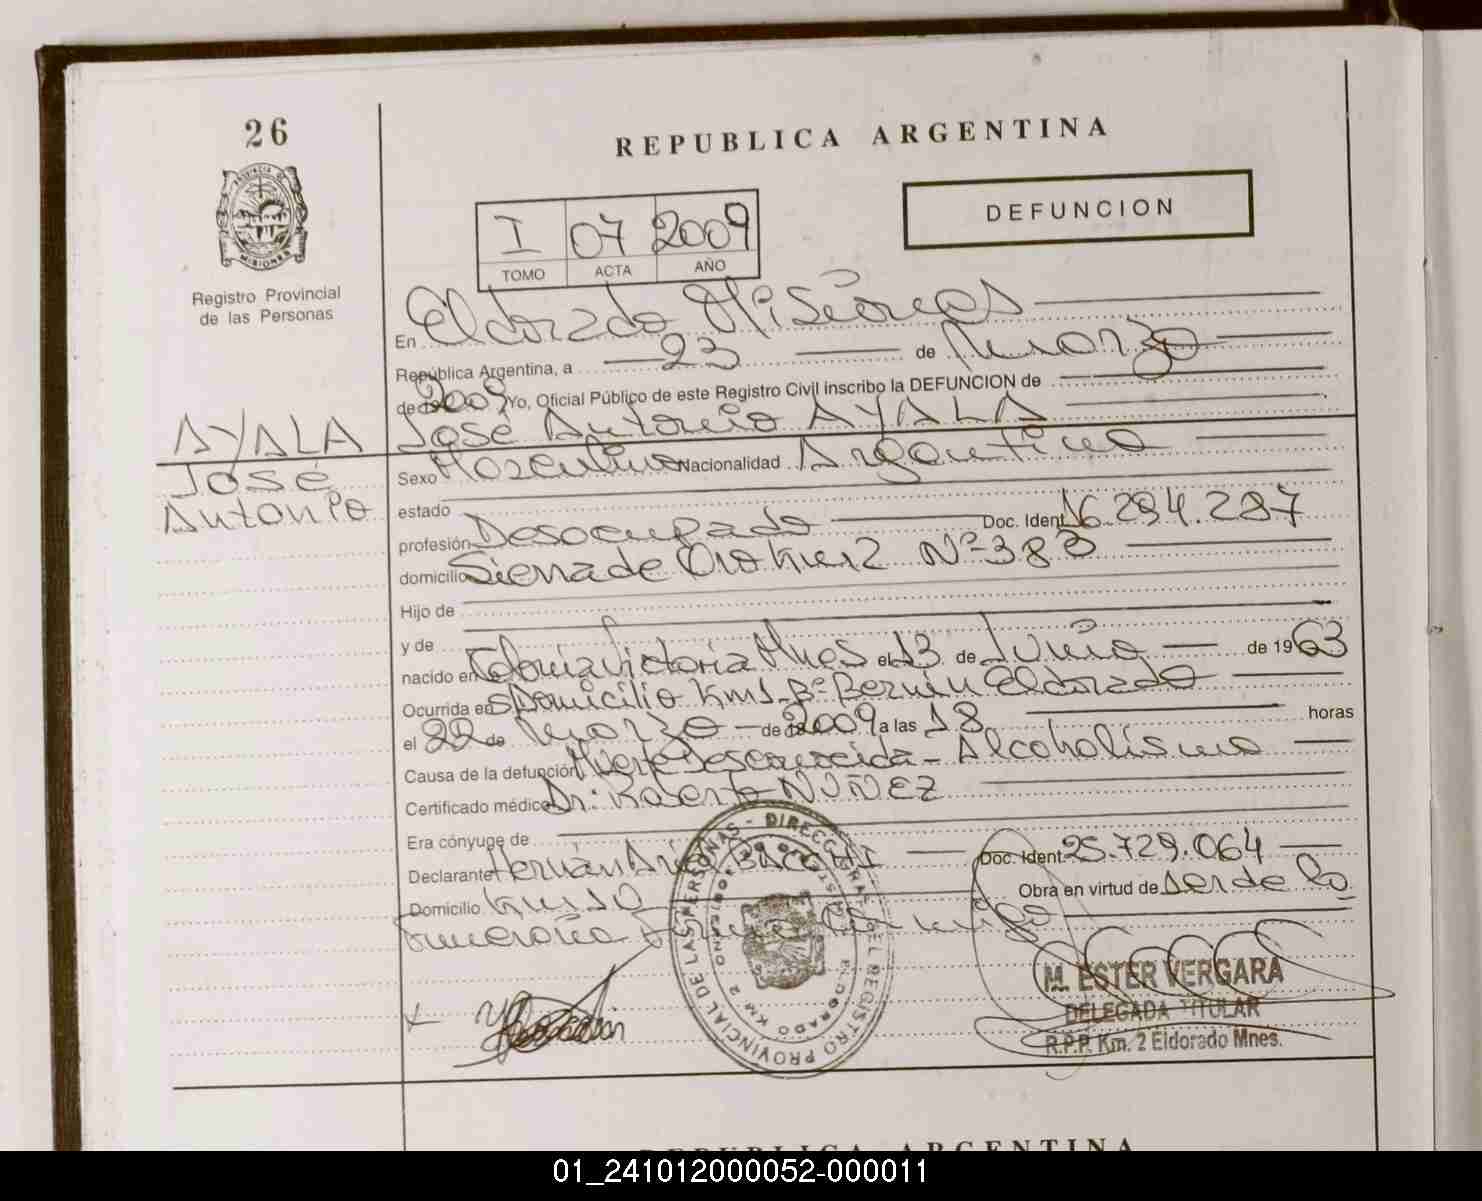 26
REPUBLICA ARGENTINA
PROVINCIA DE MISIONES
Registro Provincial
de las Personas
I 07 2009
TOMO ACTA AÑO
DEFUNCION
En Eldorado Misiones
República Argentina, a 23 de Marzo
de 2009 Yo, Oficial Público de este Registro Civil inscribo la DEFUNCION de
AYALA José Antonio AYALA
José
Antonio
Sexo Masculino Nacionalidad Argentina
estado
profesión Desocupado Doc. Ident. 16.294.287
domicilio Sierra de Oro km 2 Nº 383
Hijo de
y de
nacido en Colonia Victoria Mnes el 13 de Junio de 1963
Ocurrida en Domicilio Km 1 Bº Eldorado
el 22 de Marzo de 2009 a las 18 horas
Causa de la defunción Muerte Desconocida - Alcoholismo
Certificado médico Dr: Roberto NUÑEZ
Era cónyuge de
Declarante Hernán Doc. Ident. 25.729.064
Domicilio km 10 Obra en virtud de ser de la
funeraria
DIRECC GRAL DEL REGISTRO PROVINCIAL DE LAS PERSONAS
ELDORADO KM 2
M. ESTER VERGARA
DELEGADA TITULAR
R.P.P. Km. 2 Eldorado Mnes.
REPUBLICA ARGENTINA
01_241012000052-000011